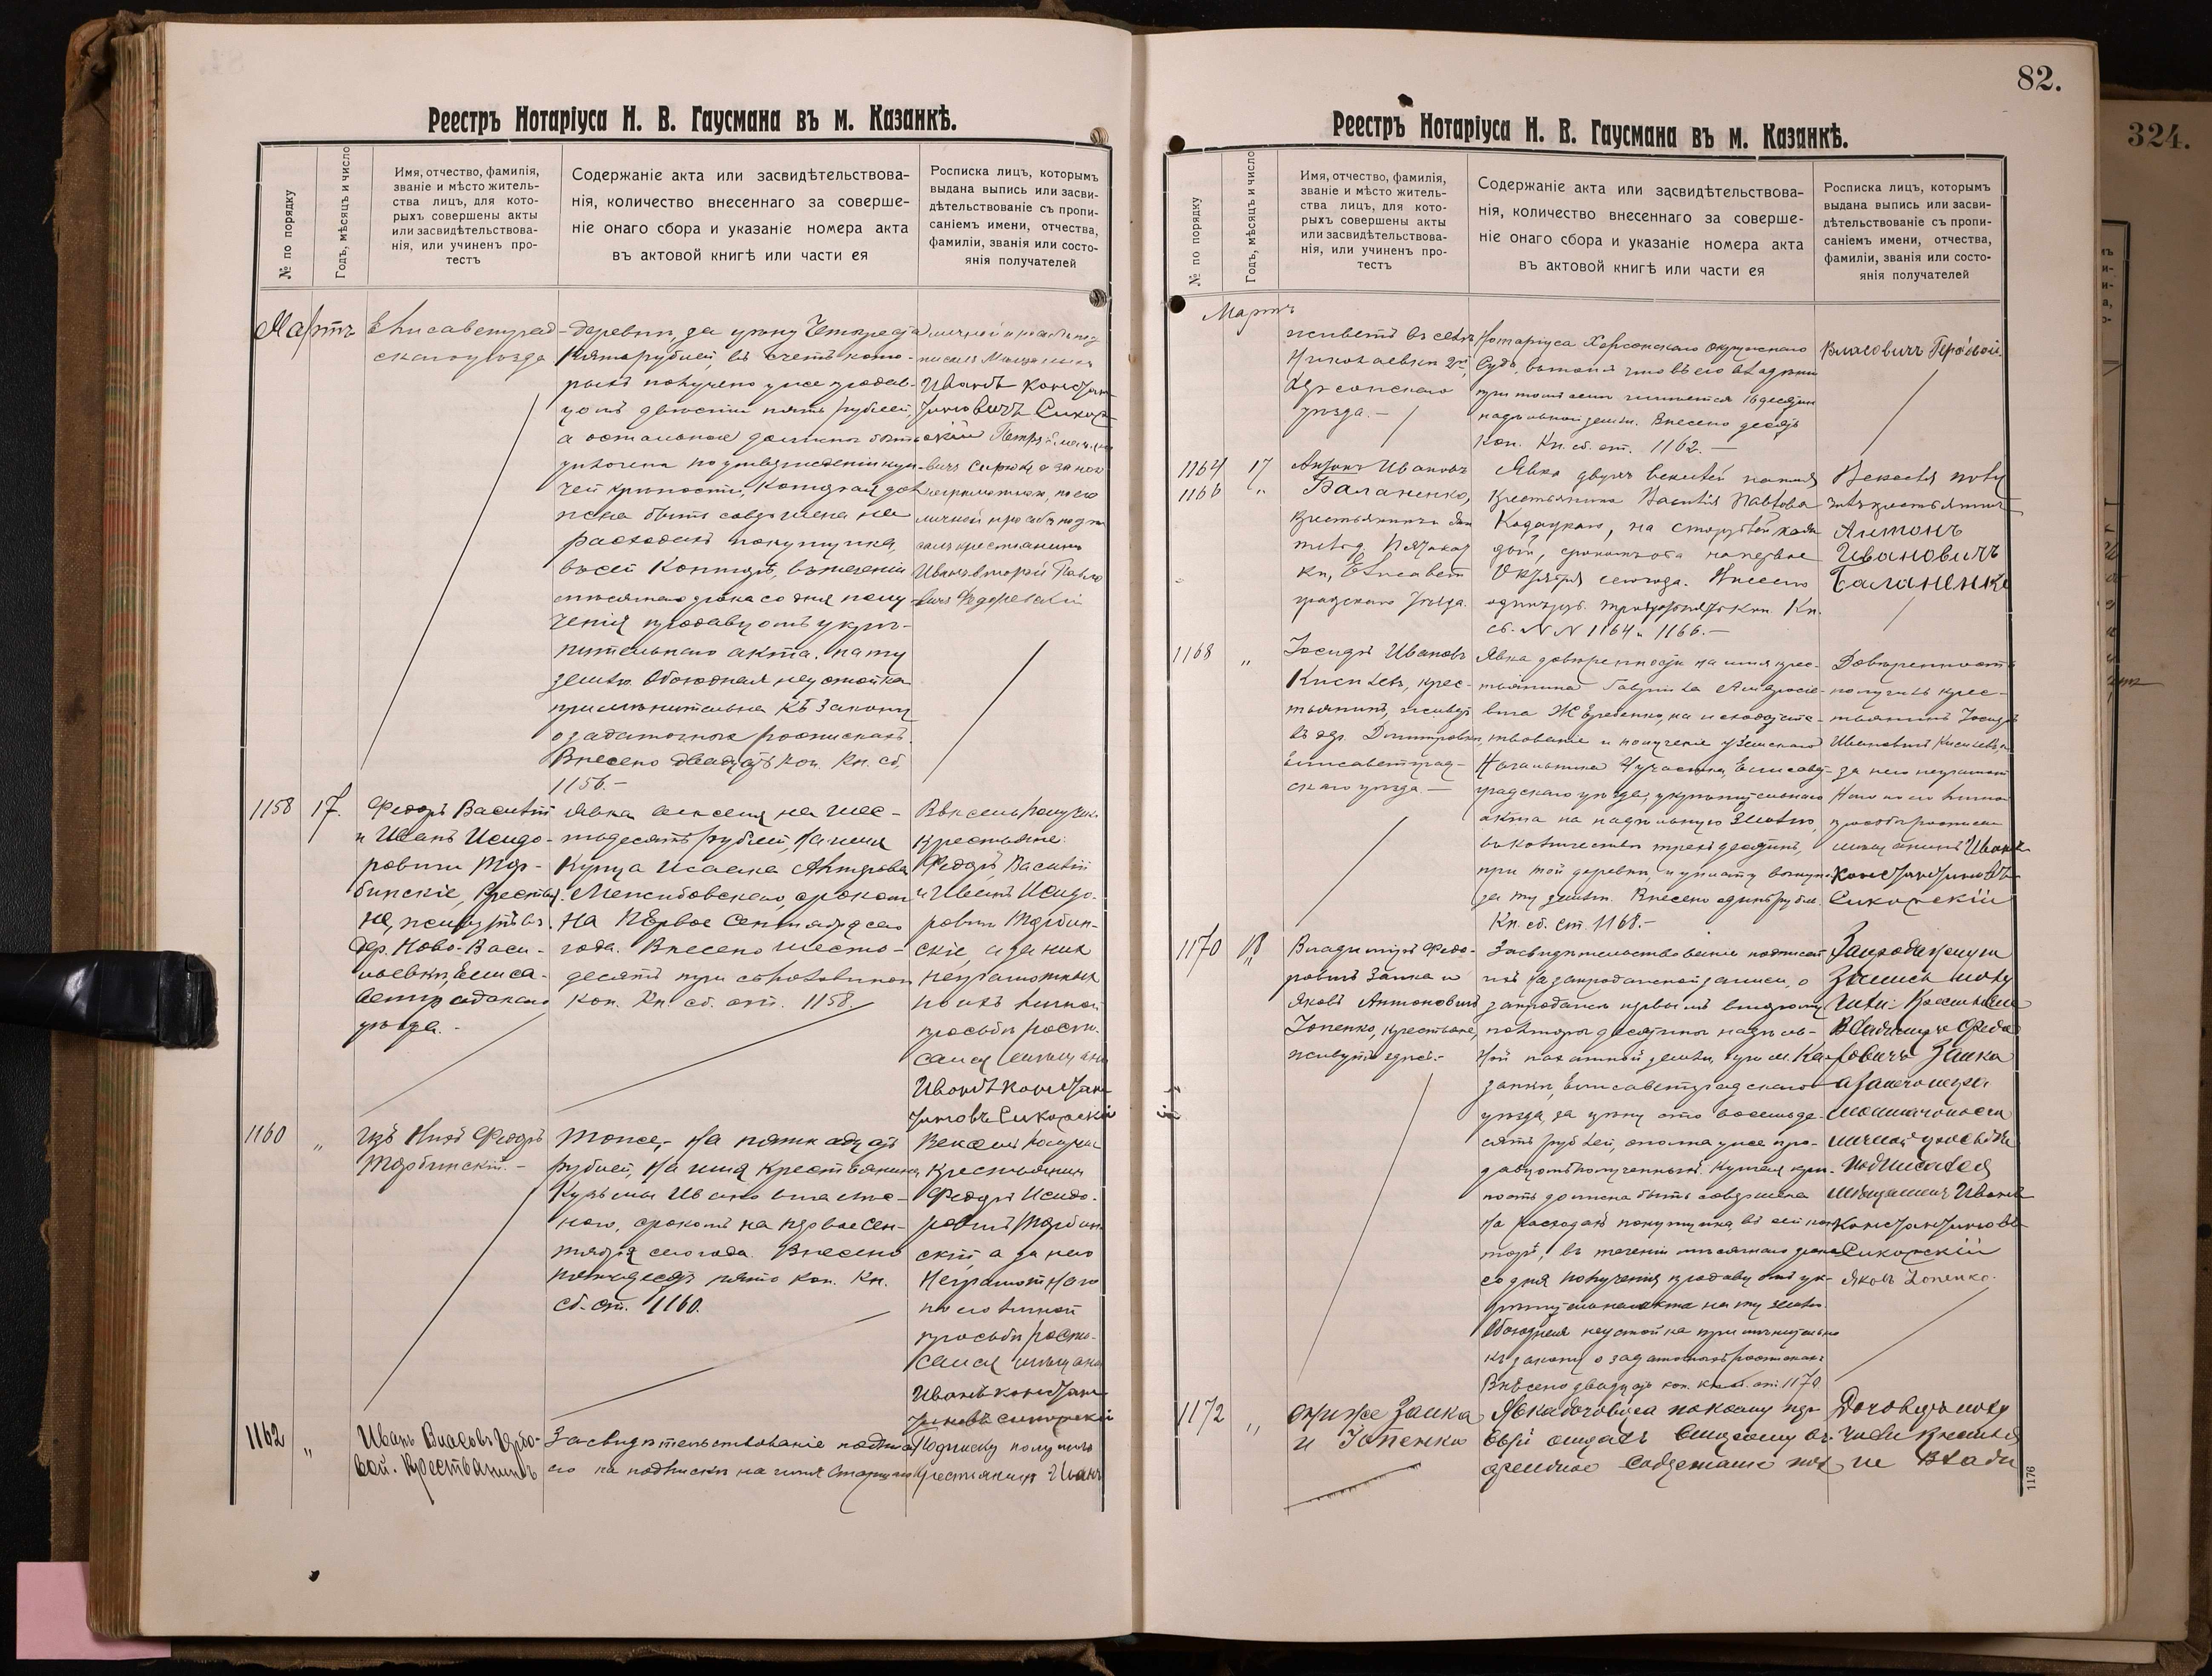 Реестръ Нотаріуса Н. В. Гаусмана въ м. Казанкѣ.
№ по порядку
Годъ, мѣсяцъ и число
Имя, отчество, фамилія,
званіе и мѣсто житель-
ства лицъ, для кото-
рыхъ совершены акты
или засвидѣтельствова-
нія, или учиненъ про-
тестъ
Содержаніе акта или засвидѣтельствова-
нія, количество внесеннаго за соверше-
ніе онаго сбора и указаніе номера акта
въ актовой книгѣ или части ея
Росписка лицъ, которымъ
выдана выпись или засви-
дѣтельствованіе съ пропи-
саніемъ имени, отчества,
фамиліи, званія или состо-
янія получателей
Мартъ
Елисаветград-
скаго уѣзда
деревни, за цѣну Четыреста
пять рублей, въ счетъ кото-
рыхъ получено уже продав-
цомъ двѣсти пять рублей,
а остальные должны быть
уплочены по утвержденіи куп-
чей крѣпости, которая дол
жна быть совершена на
расходахъ покупщика,
въ сей Конторѣ, въ теченіи
мѣсячнаго срока со дня полу-
ченія продавцомъ укрѣ-
пительнаго акта на ту
землю. Обоюдная неустойка
примѣнительна къ Закону
о задаточныхъ роспискахъ.
Внесено двадцать коп. Кн. сб.
1156.-
Иванъ Констан
тиновичъ Сикор
скій
личной просьбѣ подпи
салъ крестьянинъ
1158
17.
Федоръ, Василій
и Иванъ Исидо-
ровичи Тер-
бинскіе, крестья
не, живутъ въ
дер. Ново-Васи-
льевкѣ, Елиса-
ветградскаго
уѣзда.-
Явка векселя на шес-
тьдесятъ рублей, на имя
Купца Исаака
срокомъ
на первое Сентября сего
года. Внесено шесть-
десятъ три съ половиною
коп. Кн. сб. ст. 1158.
Вексель получили
крестьяне:
Федоръ, Василій
и Иванъ Исидо-
ровичи Тербин-
скіе, а за нихъ
неграмотныхъ
по ихъ личной
просьбѣ роспи-
сался мѣщанинъ
Иванъ Констан-
тиновъ Сикорскій
1160
"
Изъ нихъ Федоръ
Тербинскій.-
Тоже,- на пятнадцать
рублей, на имя Крестьянина
Кузьмы Иванова
срокомъ на первое Сен-
тября сего года. Внесено
пятьдесятъ пять коп. Кн.
сб. ст. 1160.
Вексель получилъ
Крестьянинъ
Федоръ Исидо-
ровичъ Тербин
скій, а за него
неграмотнаго
по его личной
просьбѣ роспи-
сался мѣщанинъ
Иванъ Констан
тиновъ Сикорскій
1162
"
Иванъ Власовъ
Крестьянинъ
Засвидѣтельствованіе подписи
его на подпискѣ на имя Старшаго
Подписку получилъ
крестьянинъ Иванъ
82.
Реестръ Нотаріуса Н. В. Гаусмана въ м. Казанкѣ.
№ по порядку
Годъ, мѣсяцъ и число
Имя, отчество, фамилія,
званіе и мѣсто житель-
ства лицъ, для кото-
рыхъ совершены акты
или засвидѣтельствова-
нія, или учиненъ про-
тестъ
Содержаніе акта или засвидѣтельствова-
нія, количество внесеннаго за соверше-
ніе онаго сбора и указаніе номера акта
въ актовой книгѣ или части ея
Росписка лицъ, которымъ
выдана выпись или засви-
дѣтельствованіе съ пропи-
саніемъ имени, отчества,
фамиліи, званія или состо-
янія получателей
Мартъ
живетъ въ селѣ
Николаевкѣ 2й,
Херсонскаго
уѣзда.-
Нотаріуса Херсонскаго Окружнаго
Суда, въ томъ что въ его владѣніи
при томъ селѣ имѣется 16 десятин
надѣльной земли. Внесено десять
коп. Кн. сб. ст. 1162.-
Власовичъ
1164
1166
17
"
Антонъ Ивановъ
Баланенко,
крестьянинъ
Елисавет
градскаго уѣзда.
Явка двухъ векселей на имя
крестьянина Василія Павлова
Кодацкаго, на сто рублей каж
дый, срокомъ оба на первое
Октября сего года. Внесено
одинъ руб. тридцать коп. Кн.
сб. NN 1164 и 1166.-
Векселя полу
чилъ крестьянинъ
Антонъ
Ивановичъ
Баланенко
1168
"
Іосифъ Ивановъ
Киселевъ, крес-
тьянинъ, живетъ
въ дер. Димитровкѣ,
Елисаветград-
скаго уѣзда.-
Явка довѣренности на имя крес-
тьянина Гавріила Амвросіе-
вича Жеребенко, на исходатайс-
твованіе и полученіе у Земскаго
Начальника участка, Елисавет-
градскаго уѣзда, укрѣпительнаго
акта на надѣльную землю,
въ количествѣ трехъ десятинъ,
при той деревнѣ, и уплату выкупа
за ту землю. Внесено одинъ рубль.
Кн. сб. ст. 1168.-
Довѣренность
получилъ крес-
тьянинъ Іосифъ
Ивановичъ Киселевъ, а
за него неграмот
наго по его личной
просьбѣ росписался
мѣщанинъ Иванъ
Константиновъ
Сикорскій
1170
18
Владиміръ Федо-
ровичъ Заика и
Яковъ Антоновичъ
Зопенко, крестьяне,
живутъ здѣсь.-
Засвидѣтельствованіе подписей
ихъ на запродажной записи, о
запродажѣ первымъ второму
полторы десятины надѣль-
ной пахатной земли, при м. Ка-
занкѣ, Елисаветградскаго
уѣзда, за цѣну сто восемьде-
сятъ рублей, сполна уже про-
давцомъ полученныхъ. Купчая крѣ-
пость должна быть совершена
на расходахъ покупщика, въ сей кон
торѣ, въ теченіи мѣсячнаго срока
со дня полученія продавцомъ ук-
рѣпительнаго акта на ту землю.
Обоюдная неустойка примѣнительно
къ закону о задаточныхъ роспискахъ
Внесено двадцать коп. Кн. сб. ст. 1170
Запродажную
Запись полу
чили: Крестьяне
Владиміръ Федо
ровичъ Заика
личной просьбѣ
подписался
мѣщанинъ Иванъ
Константиновъ
Сикорскій
Яковъ Зопенко.
1172
"
Они же Заика
и Зопенко
Явка договора по коему пер-
вый отдалъ второму въ
арендное содержаніе
Договоръ полу
чили крестья
не Влади
1176
324.